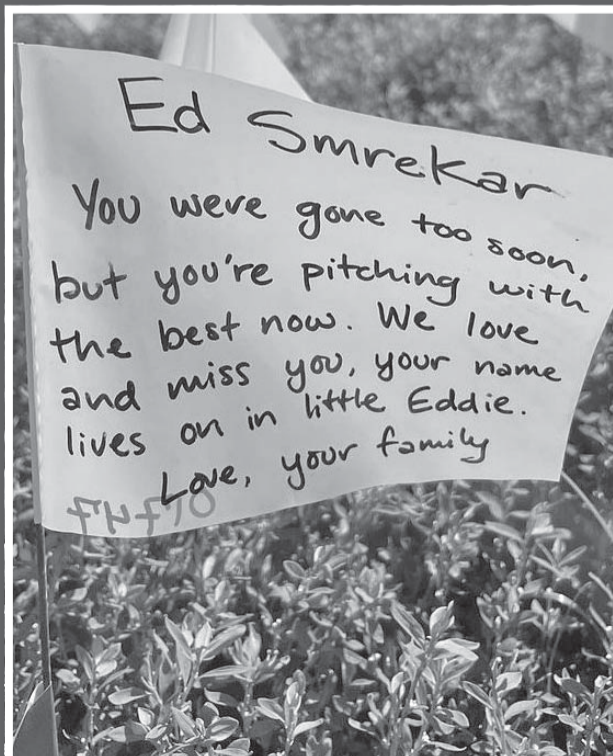 Ed Smrekar
You were gone too soon,
but you're pitching with
the best now. We love
and miss you, your name
lives on in little Eddie.
Love, your family